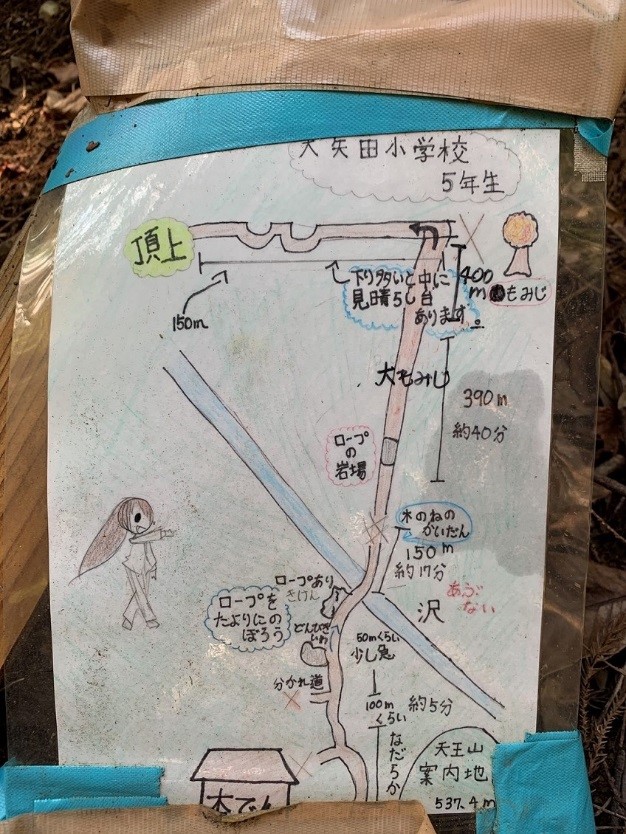 大矢田小学校
5年生
頂上
150m
下り坂いと中に
見晴らし台
あります。
400
m
もみじ
大もみじ
390m
約40分
ロープ
の
岩場
木のねの
かいだん
150m
約17分
あぶ
ない
沢
ロープあり
きけん
ロープを
たよりにの
ぼろう
50mくらい
少し急
分かれ道
100m
くらい
約5分
なだらか
本でん
天王山
案内地
537.4m